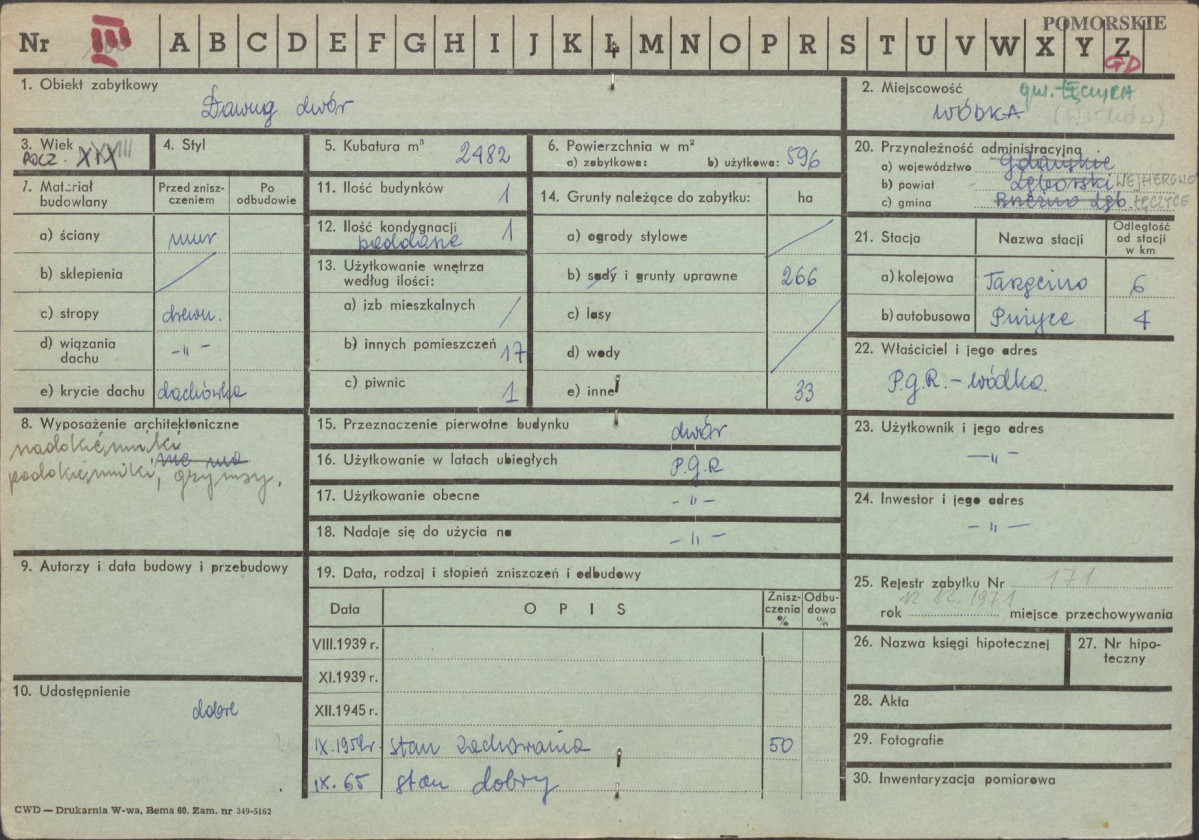 POMORSKIE
Nr III A B C D E F G H I J K Ł M N O P R S T U V W X Y Z
GD
1. Obiekt zabytkowy
Dawny dwór
2. Miejscowość gm. ŁĘCZYCE
WÓDKA (WITKÓW)
3. Wiek
POCZ. XIX
4. Styl
5. Kubatura m³ 2482
6. Powierzchnia w m²
a) zabytkowa: b) użytkowa: 596
20. Przynależność administracyjną
a) województwo Gdańskie
b) powiat Lęborski WEJHEROWO
c) gmina Lęb. ŁĘCZYCE
7. Materiał budowlany
Przed zniszczeniem
Po odbudowie
a) ściany mur
b) sklepienia
c) stropy drewn.
d) wiązania dachu -"-
e) krycie dachu dachówka
11. Ilość budynków 1
12. Ilość kondygnacji 1
poddasze
13. Użytkowanie wnętrza
według ilości:
a) izb mieszkalnych /
b) innych pomieszczeń 17
c) piwnic 1
14. Grunty należące do zabytku: ha
a) ogrody stylowe
b) sady i grunty uprawne 266
c) lasy
d) wody
e) inne 33
21. Stacja
Nazwa stacji
Odległość od stacji w km
a) kolejowa 6
b) autobusowa 4
22. Właściciel i jego adres
P.G.R. – Wódka
8. Wyposażenie architektoniczne
nadokienniki
podokienniki, nie ma gzymsy.
15. Przeznaczenie pierwotne budynku dwór
16. Użytkowanie w latach ubiegłych P.G.R
17. Użytkowanie obecne -"-
18. Nadaje się do użycia na -"-
23. Użytkownik i jego adres
-"-
24. Inwestor i jego adres
-"-
9. Autorzy i data budowy i przebudowy
19. Data, rodzaj i stopień zniszczeń i odbudowy
Data
OPIS
Zniszczenia %
Odbudowa %
VIII.1939 r.
XI.1939 r.
XII.1945 r.
IX.1959r. stan zachowania 50
IX.65 stan dobry
25. Rejestr zabytku Nr 171
12.12.1971
rok miejsce przechowywania
26. Nazwa księgi hipotecznej
27. Nr hipoteczny
10. Udostępnienie
dobre
28. Akta
29. Fotografie
30. Inwentaryzacja pomiarowa
CWD — Drukarnia W-wa, Bema 60. Zam. nr 349-5162